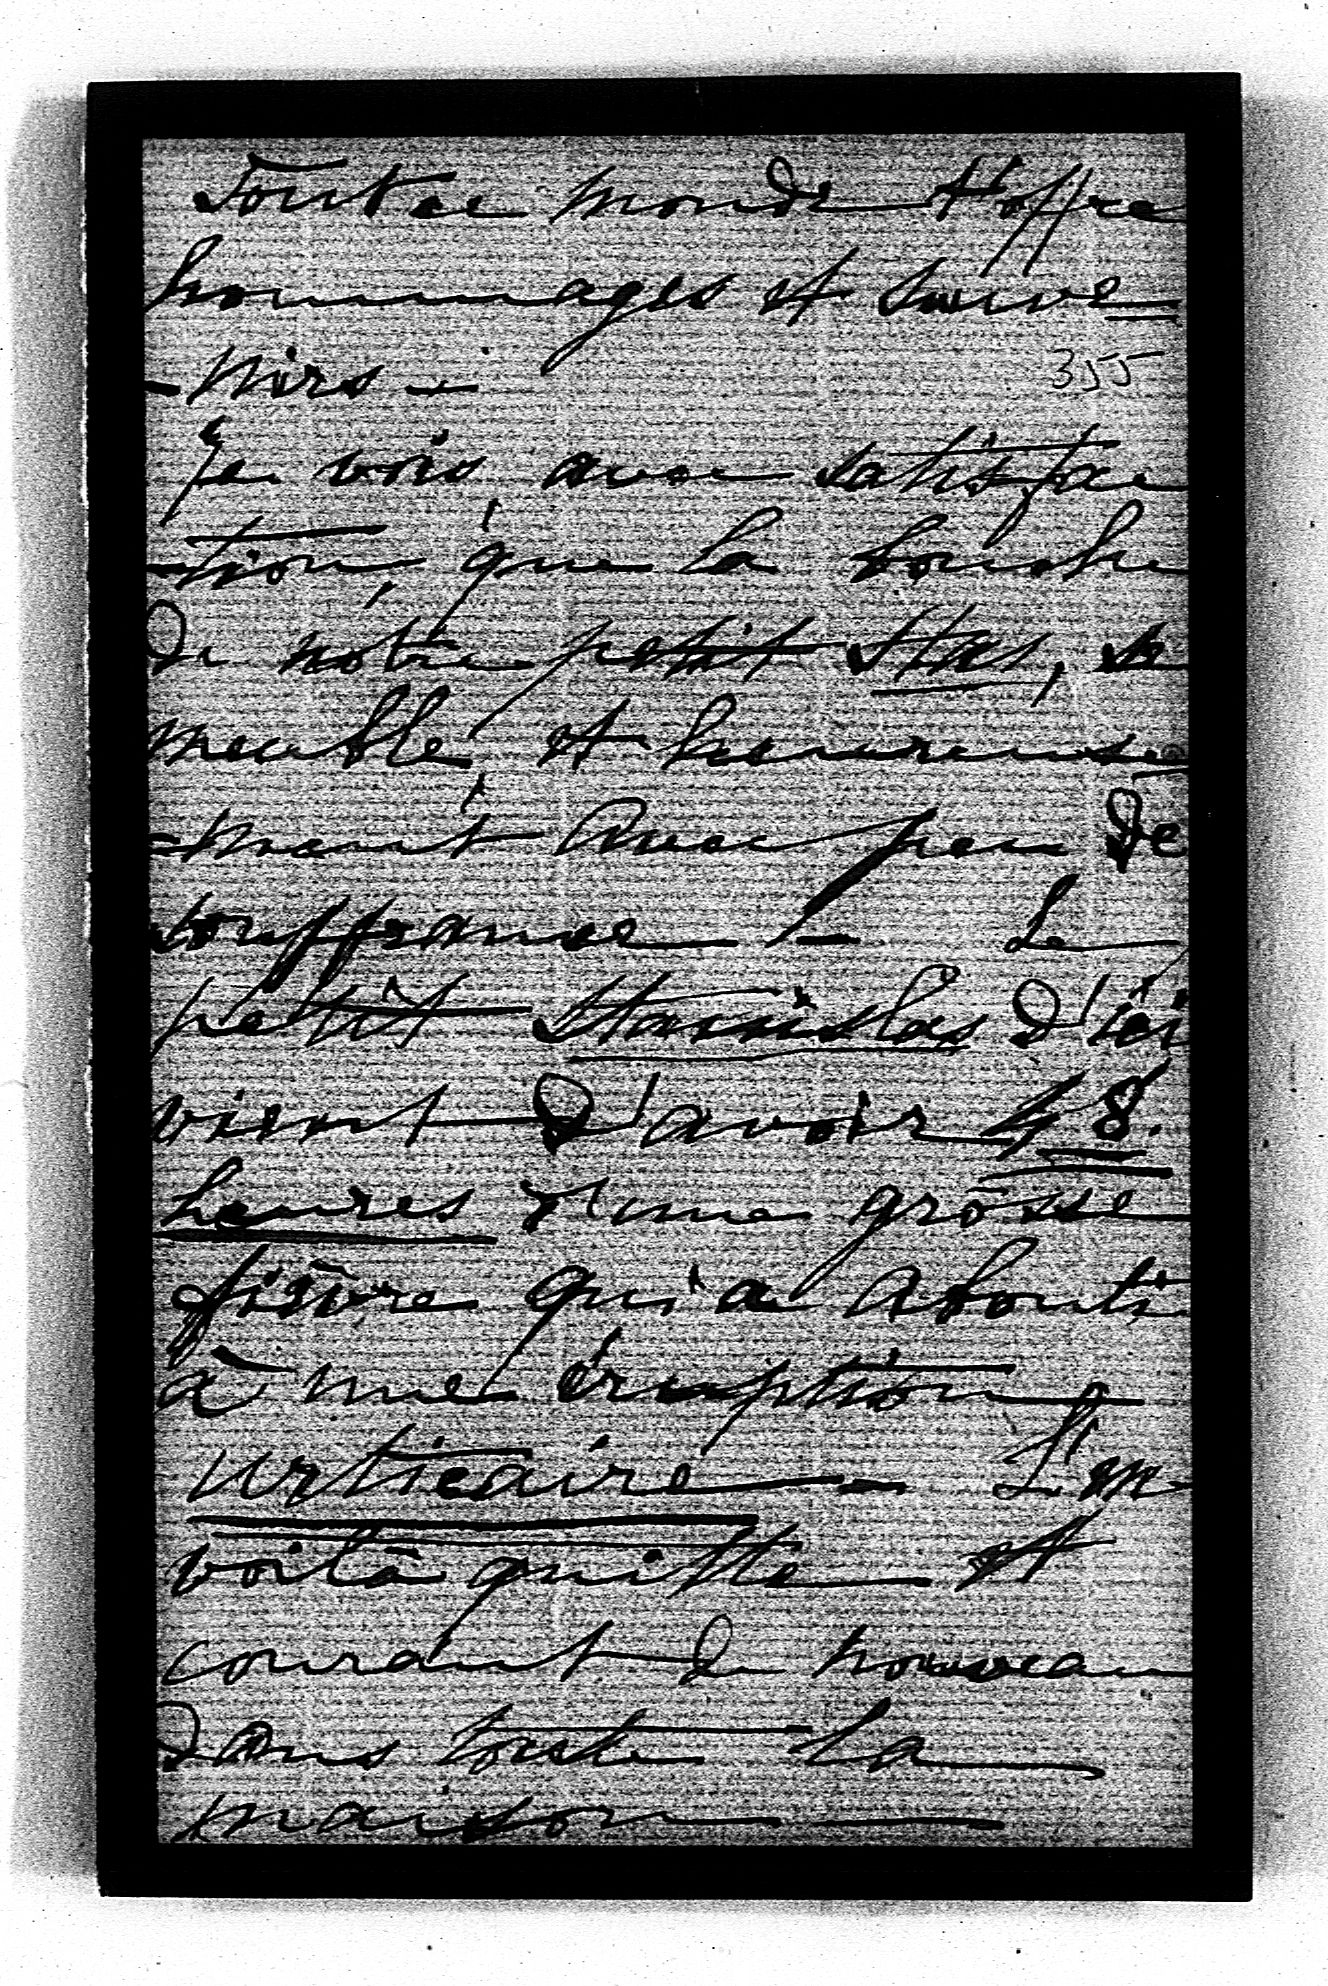 Tout ce monde t'offre
hommages et souve
-nirs -
355
Je vois avec satisfac
-tion, que la bouche
de notre petit Stas, se
meuble, et heureuse
-ment avec peu de
souffrance ! - Le
petit Stanislas d'ici
vient d'avoir 48.
heures d'une grosse
fièvre qui a abouti
à une éruption
urticaire - L'en
voilà quitte et
courant de nouveau
dans toute la
maison